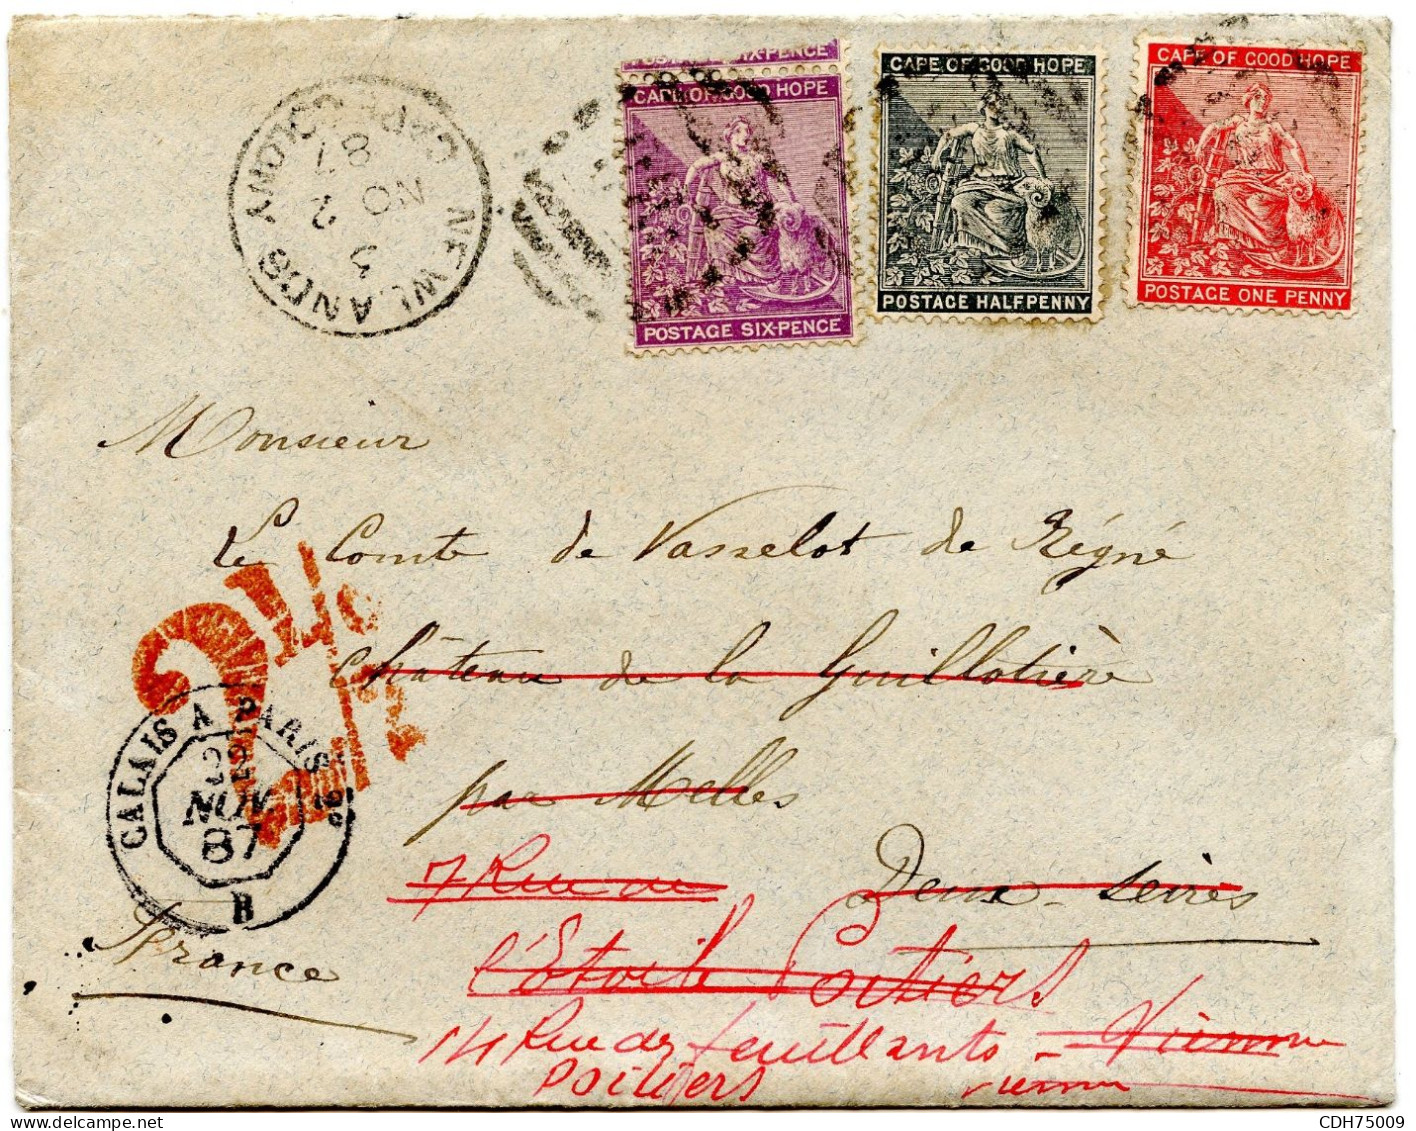 POSTAGE SIX-PENCE
CAPE OF GOOD HOPE
POSTAGE SIX-PENCE
CAPE OF GOOD HOPE
POSTAGE HALFPENNY
CAPE OF GOOD HOPE
POSTAGE ONE PENNY
NEWLANDS CAPE COLONY
3
NO 2
87
Monsieur
Le Comte de Vasselot de Régné
Château de la Guillotière
par Melles
Deux-Sèvres
France
2 1/2
CALAIS A PARIS 2º
22
NOV
87
B
7 Rue de
l'Etoile Poitiers
14 Rue des feuillants - Vienne
Poitiers Vienne
CDH75009